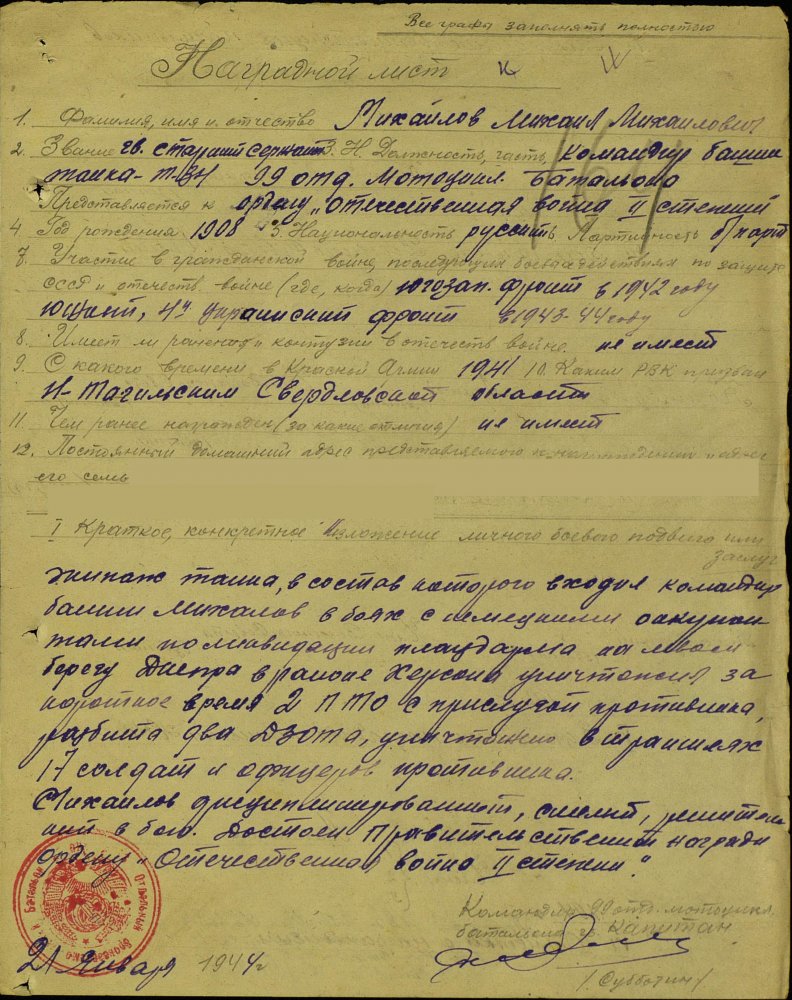 Все графы заполнять полностью
Наградной лист
1. Фамилия, имя и отчество Михайлов Михаил Михайлович
2. Звание гв. старший сержант 3. Н. Должность, часть командир башни
танка Т-3Н 99 отд. мотоцикл. Батальона
Представляется к ордену „Отечественная война II степени
4. Год рождения 1908 5. Национальность русский 6. Партийность б/парт
7. Участие в гражданской войне, последующих боевых действиях по защите
СССР и отечеств. войне (где, когда) югозап. фронт в 1942 году
южный, 4й украинский фронт в 1943-44 году
8. Имеет ли ранения и контузии в отечеств войне не имеет
9. С какого времени в Красной Армии 1941 10. Каким РВК призван
Н-Тагильским Свердловской области
11. Чем ранее награжден (за какие отличия) не имеет
12. Постоянный домашний адрес представляемого к награждению и адрес
его семь
I Краткое, конкретное изложение личного боевого подвига или
заслуг
Экипаж танка, в состав которого входил командир
башни Михалов в боях с немецкими оккупан
тами по ликвидации плацдарма на левом
берегу Днепра в районе Херсона уничтожил за
короткое время 2 ПТО с прислугой противника,
разбита два ДЗОТа, уничтожено в траншеях
17 солдат и офицеров противника.
Михайлов дисциплинированный, смелый, решитель
ный в бою. Достоен Правительственной награды
ордену „Отечественная война II степени".
Командир 99 отд. мотоцикл.
батальона гв Капитан
21 Января 1944г
/Субботин/